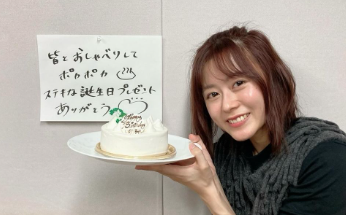 皆とおしゃべりして
ポカポカ♨
ステキな誕生日プレゼント
ありがとう
Happy
Birthday